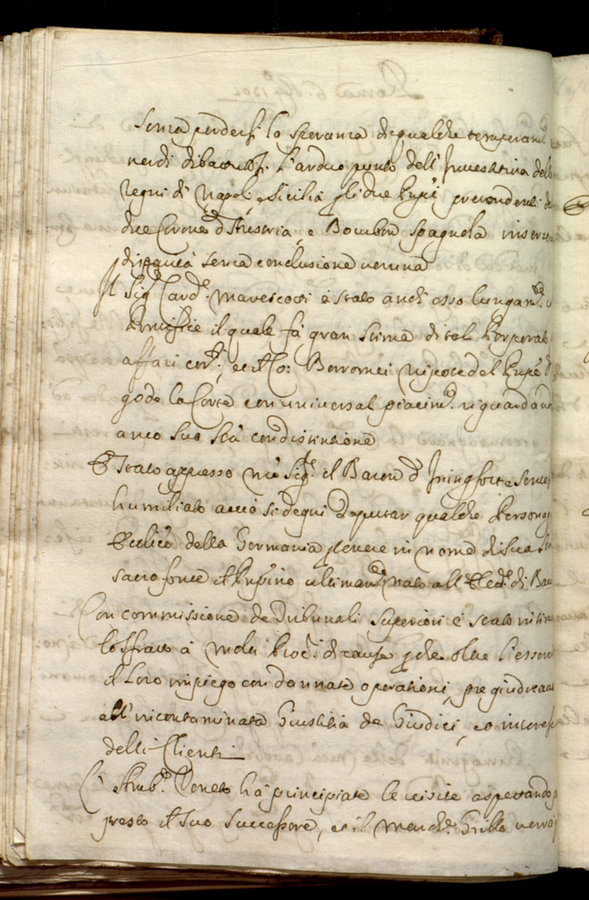 senza perdersi la speranza di qualche temperam.
nerdi dibattutosi l'arduo punto dell'Investitura delli
regni di Napoli, e Sicilia p li due Prpi pretendenti de
due Corone d'Austria, e Bombon Spagnola
disparità senza conclusione veruna
Il Sig.r Card.l Marescotti è stato anch'esso lungam.te
Pontefice il quale fà gran stima di tal Porporato
affari et il Co: Borromei nipote del
gode la Corte con universal piacim.to riguardando
anco Sua Stà con distintione
È stato appresso Nro Sig.re il Baron d'
humiliato acciò si degni deputar qualche Personag
della Germania p tenere in nome di Sua
sacro fonte il ultimam.te nato all'Elet.e di Bau
Con commissione de Tribunali superiori è stato
lo sfratto à molti Proc.i di cause p che oltre l'essere
il loro impiego con dannate operationi, pregiudicano
all'incontaminata Giustitia de Giudici, e interesse
delli Clienti
L'Amb.r Veneto hà principiato le visite aspettando
presto il suo Successore, et il March. Grillo verrà